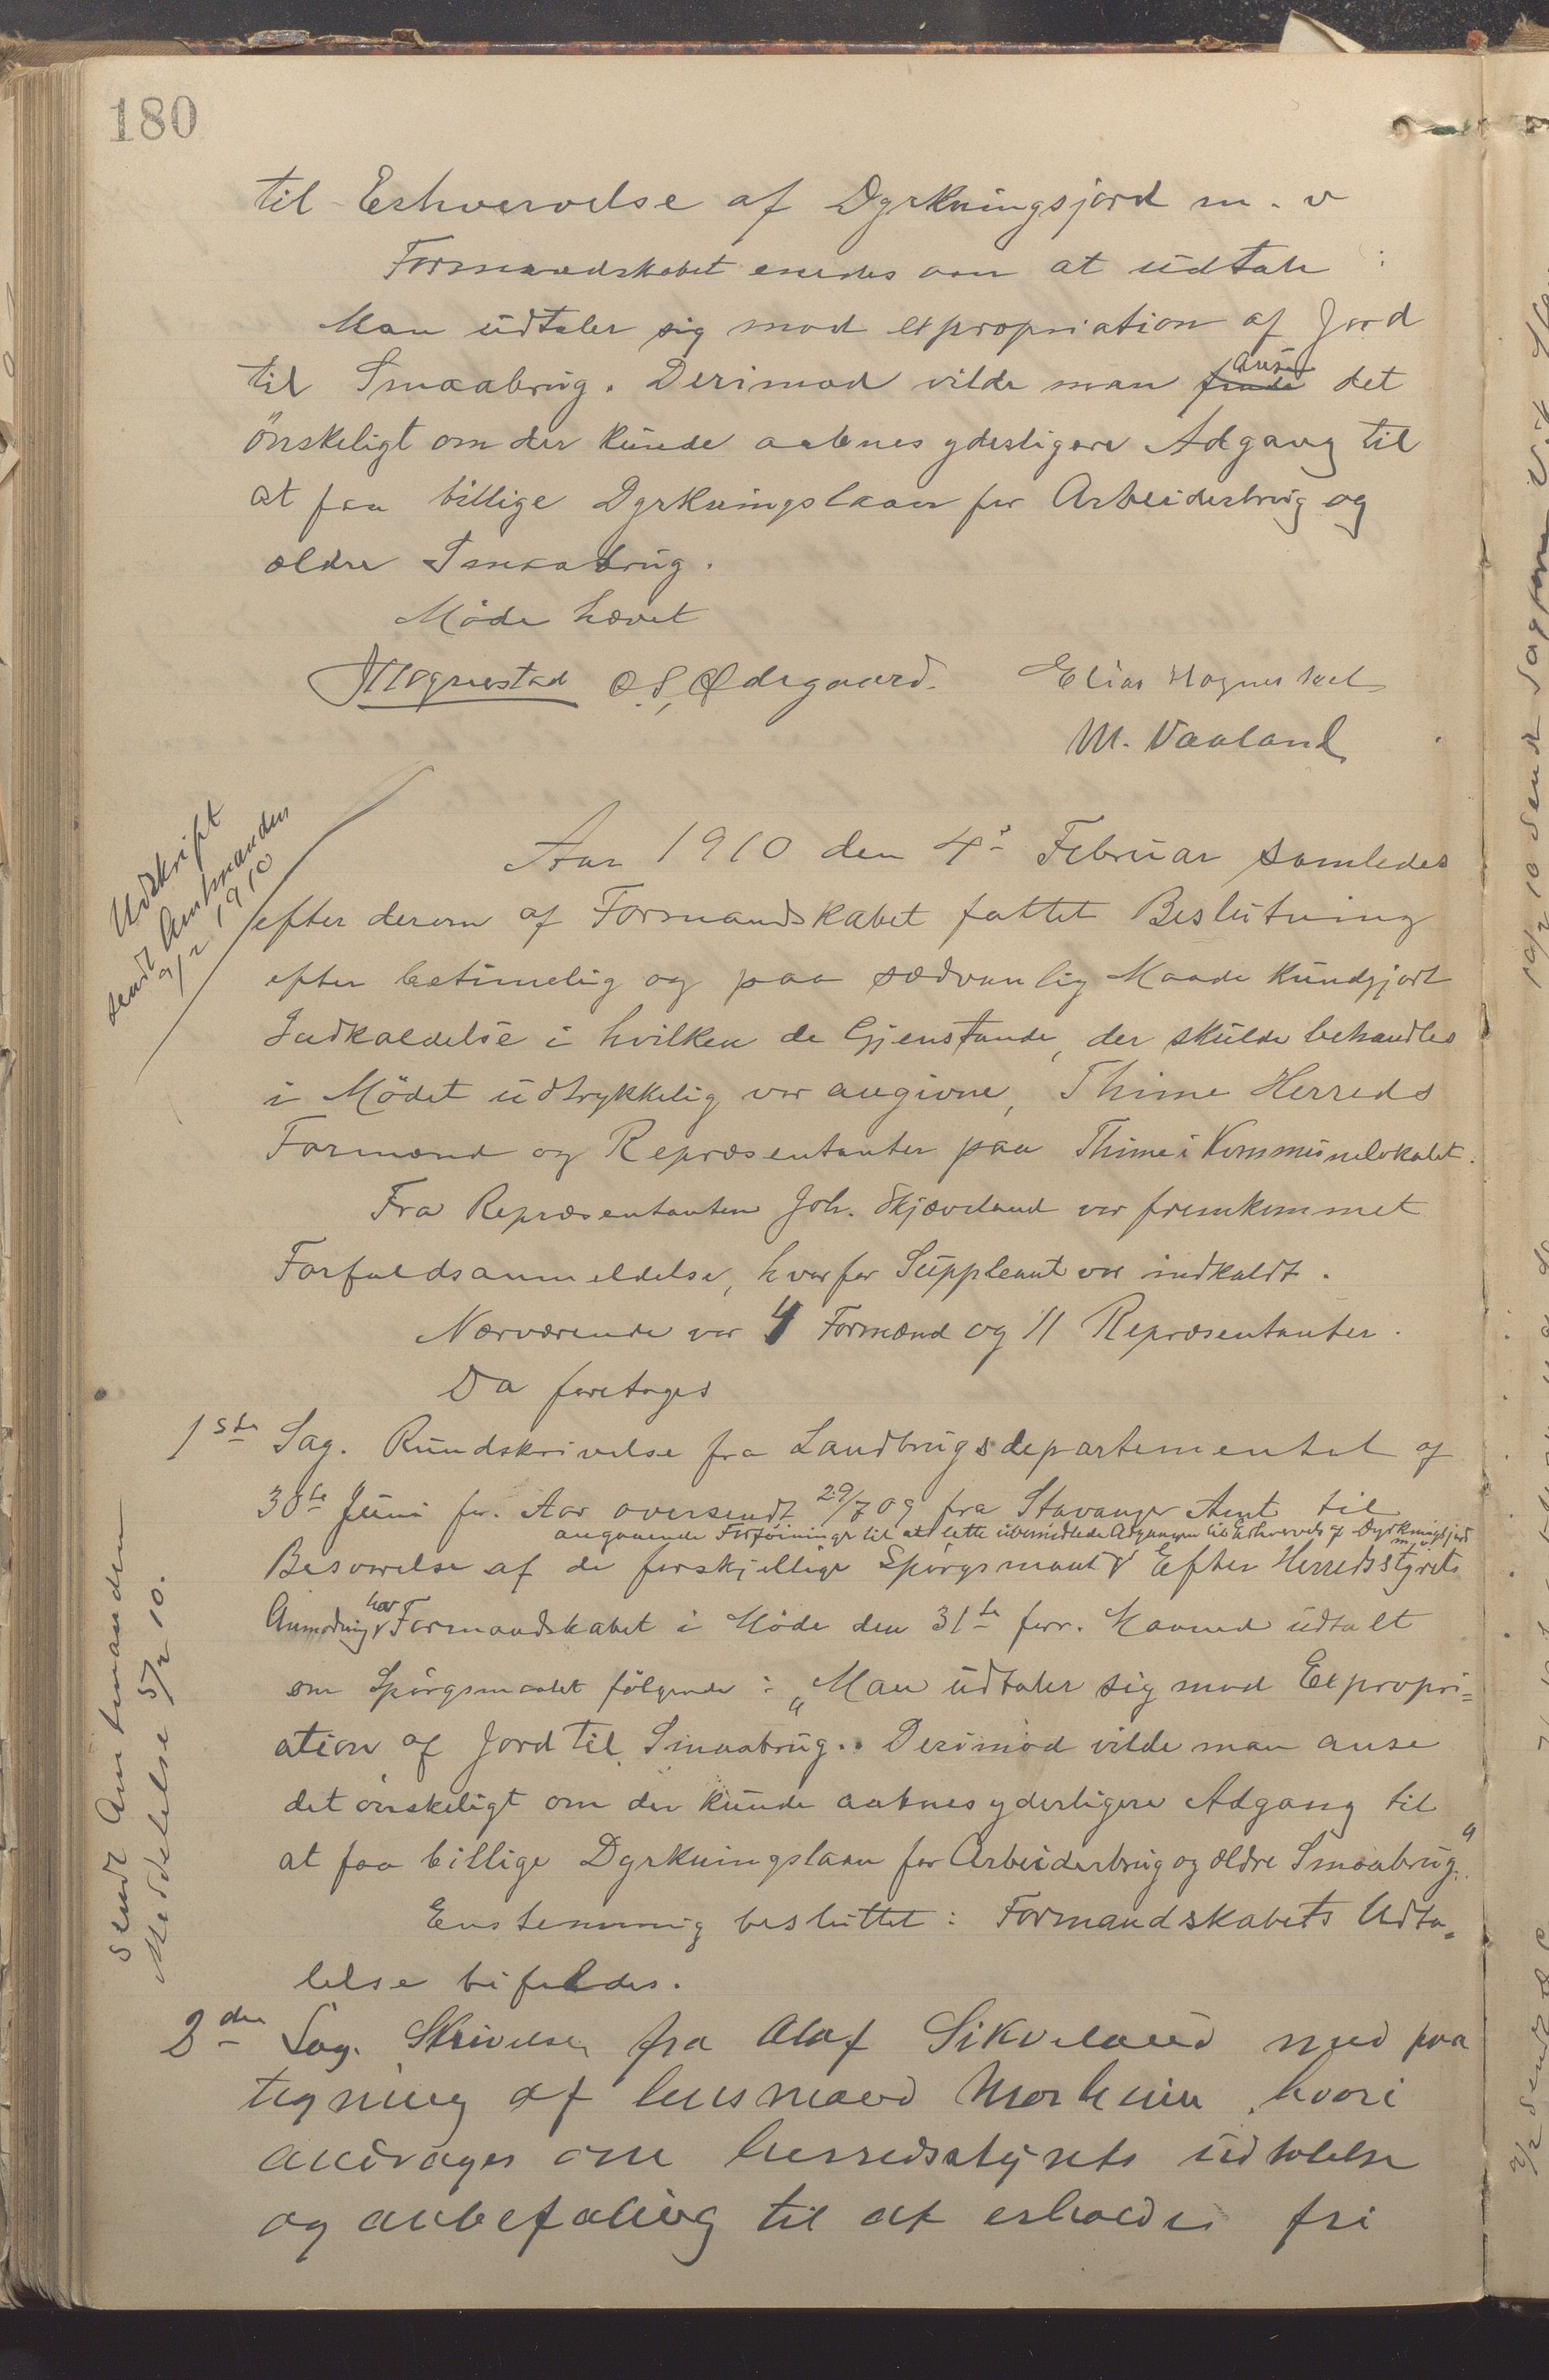 180
til Erhvervelse af Dyrkningsjord m. v
Formandskabet enedes om at udtale :
Man udtaler sig mod expropriation af Jord
til Smaabrug. Derimod vilde man finde anse det
önskeligt om der kunde aabnes yderligere Adgang til
at faa billige Dyrkningslaan for Arbeiderbrug og
ældre Smaabrug.
Møde hævet
O. S. Ødegaard. Elias Hognestad
M. Vaaland
Udskrift
sendt Amtmanden
9/2 1910
Aar 1910 den 4de Februar samledes
efter derom af Formandskabet fattet Beslutning
efter betimelig og paa sædvanlig Maade kundgjort
Indkaldelse i hvilken de Gjenstande, der skulde behandles
i Mödet udtrykkelig var angivne, Thime Herreds
Formænd og Repræsentanter paa Thime i Kommunelokalet.
Fra Repræsentanten Joh. Skjæveland var fremkommet
Forfaldsanmeldelse, hvorfor Suppleant var indkaldt.
Nærværende var 4 Formænd og 11 Repræsentanter.
Da foretoges
1ste Sag. Rundskrivelse fra Landbrugsdepartementet af
30te Juni fr. Aar oversendt 29/7 09 fra Stavanger Amt til
angaaende Forföininger til at lette ubemidlede Adgangen til Erhvervels af Dyrkningsjord m. v.
Besvarelse af de forskjellige Spörgsmaal Efter Herredsstyrets
Anmodning har Formandskabet i Möde den 31te forr. Maaned udtalt
om Spörgsmaalet fölgende : „Man udtaler sig mod Expropri=
ation af Jord til Smaabrug. Derimod vilde man anse
det önskeligt om der kunde aabnes yderligere Adgang til
at faa billige Dyrkningslaan for Arbeiderbrug og ældre Smaabrug."
Enstemmig besluttet : Formandskabets Udta=
lelse bifaldes.
Sendt Amtmanden
Meddelelse 5/2 10.
2den Sag. Skrivelse fra Olaf Sikveland med paa
tegning af lensmand Norheim, hvori
andrages om herredsstyrets udtalelse
og anbefaling til at erholde fri